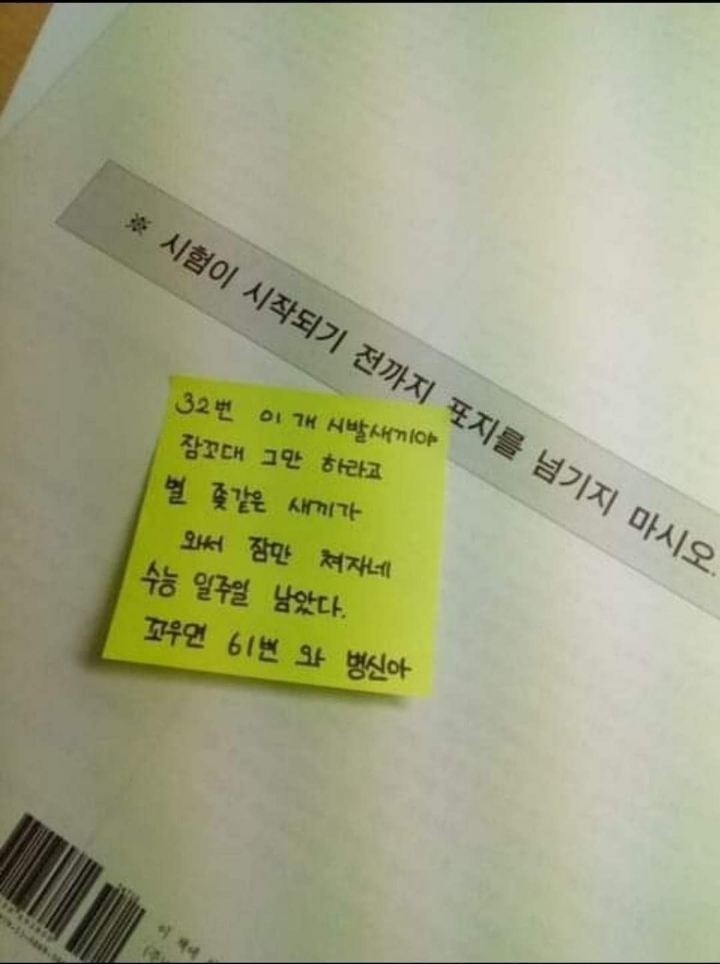 ※ 시험이 시작되기 전까지 표지를 넘기지 마시오.
32번 이 개 시발새끼야
잠꼬대 그만 하라고
별 좆같은 새끼가
와서 잠만 쳐자네
수능 일주일 남았다.
꼬우면 61번 와 병신아